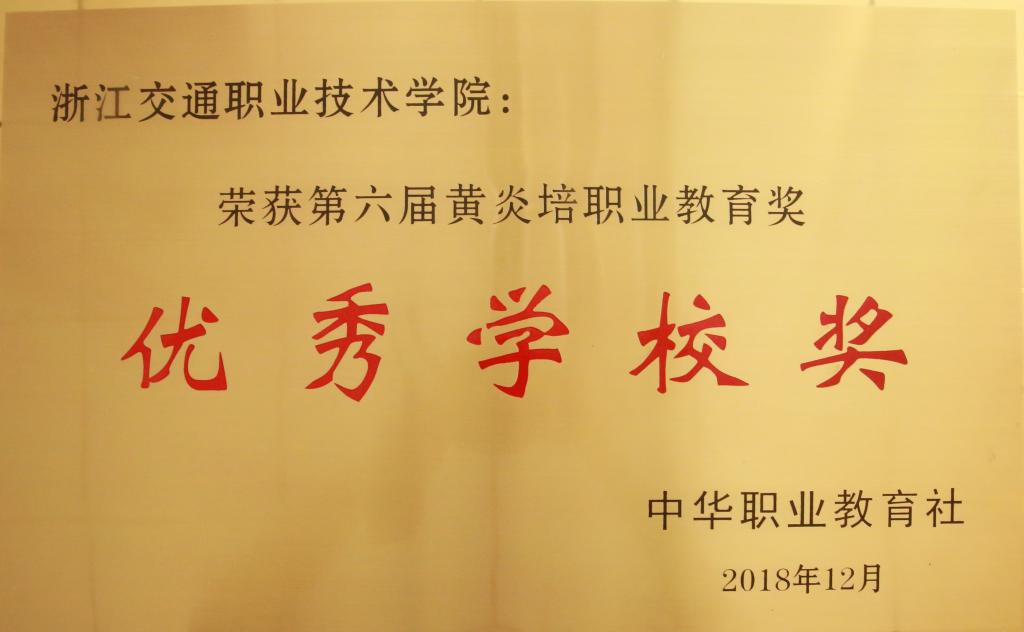 浙江交通职业技术学院：
荣获第六届黄炎培职业教育奖
优秀学校奖
中华职业教育社
2018年12月